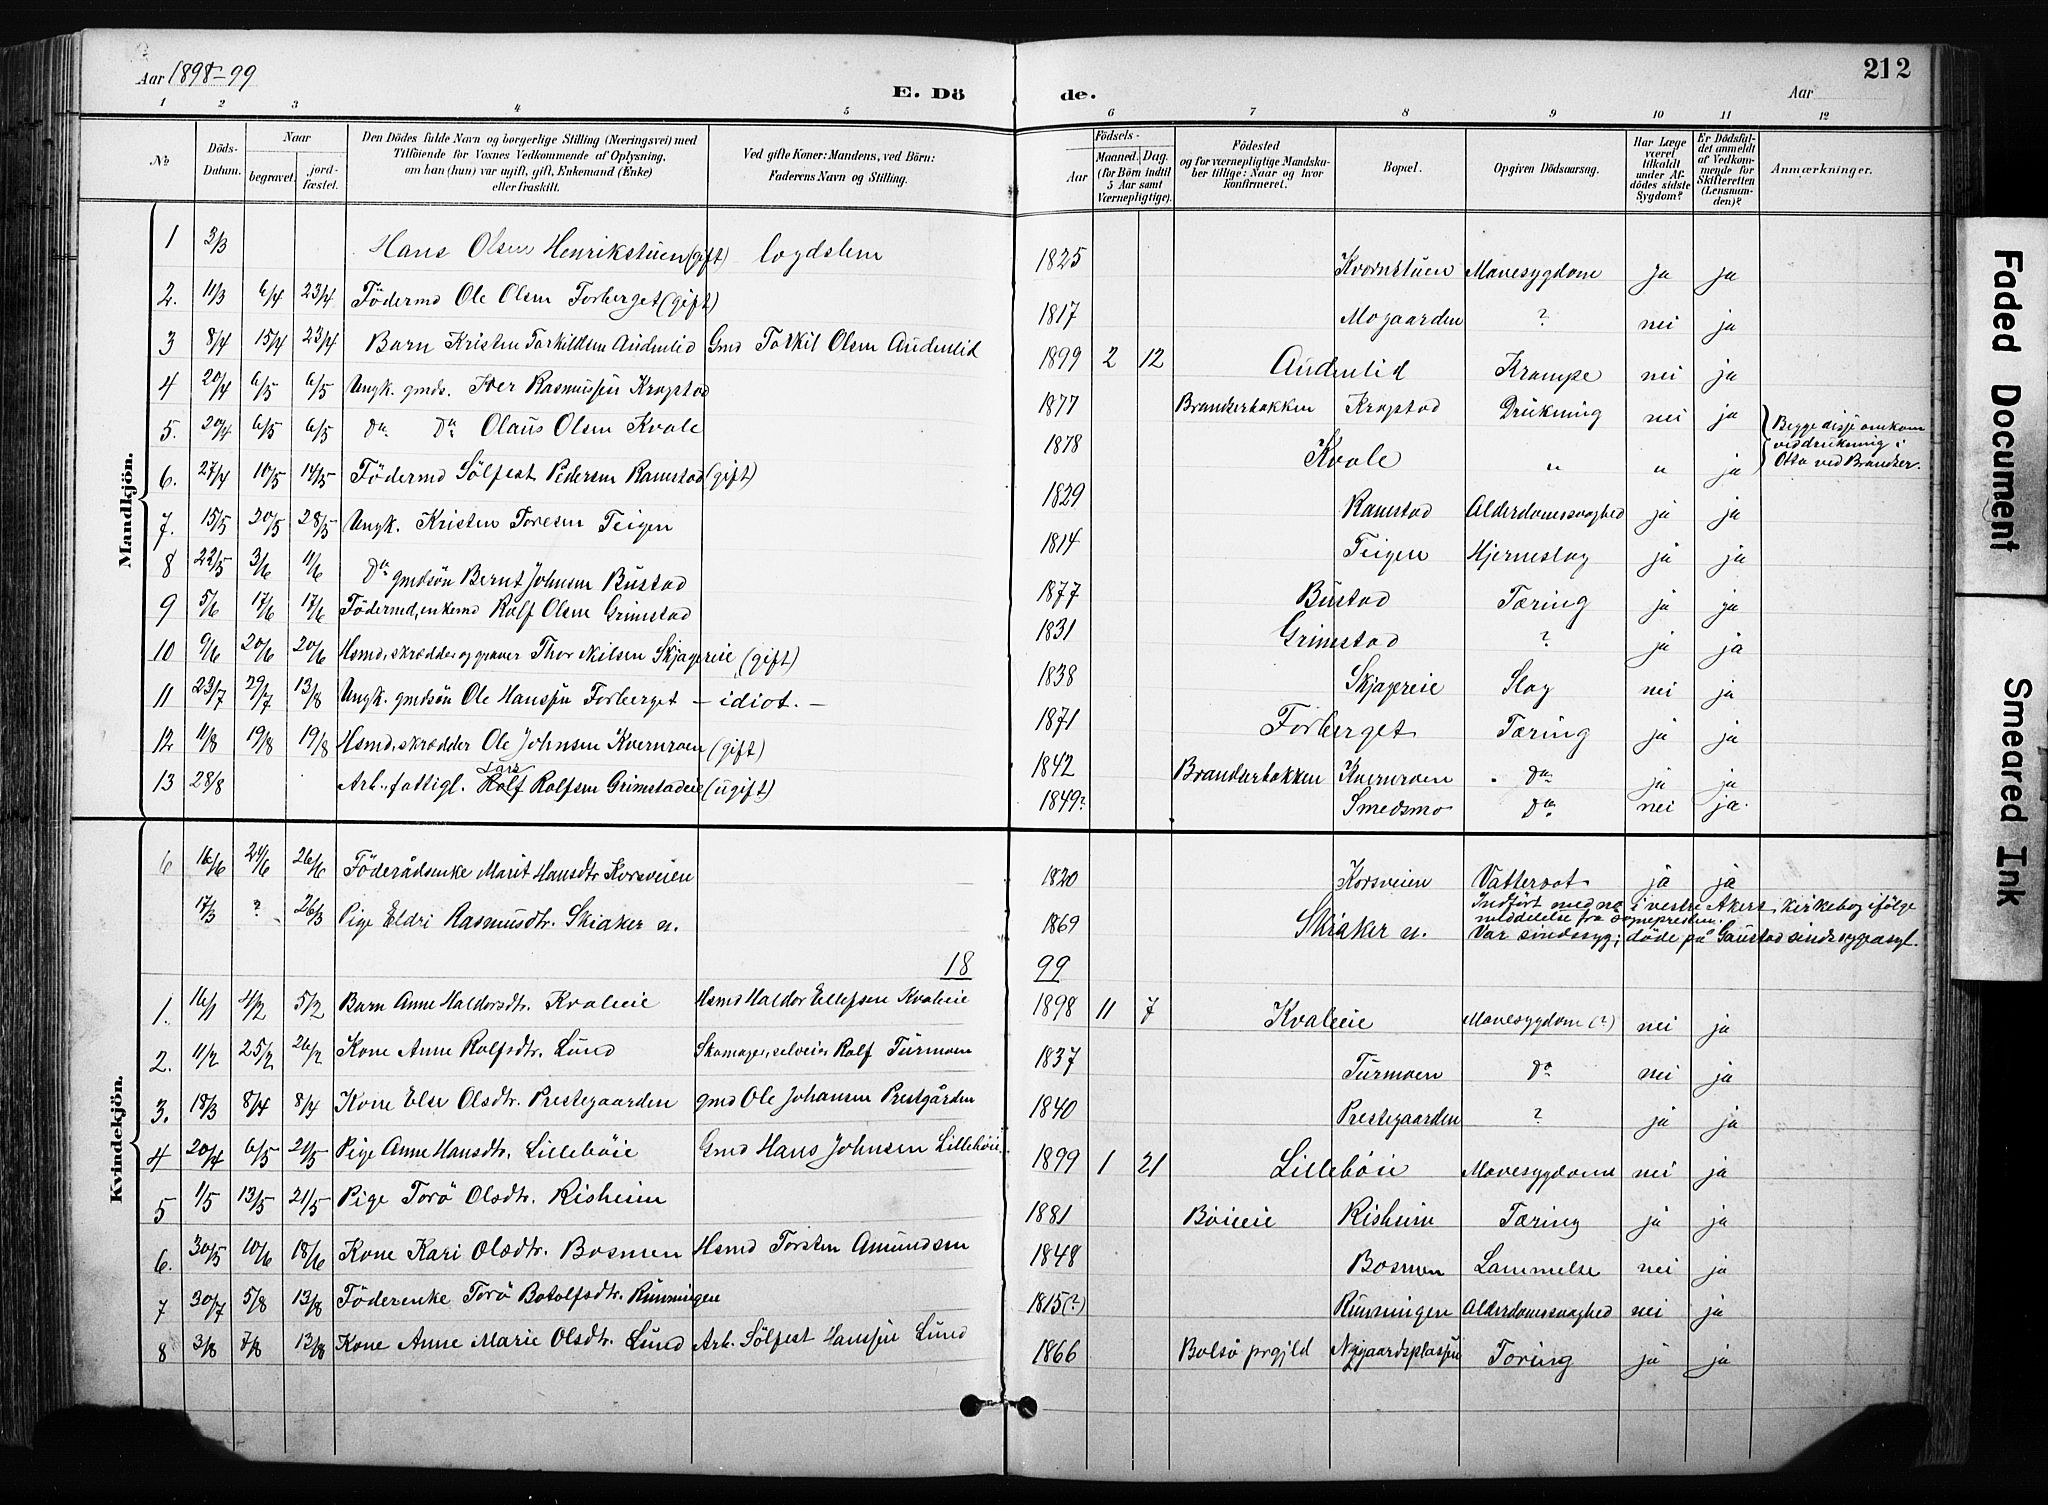 Aar 1898-99
E. Dö de.
Aar
212
1 2 3 4 5 6 7 8 9 10 11 12
No
Döds-Datum.
Naar
begravet.
jord-fæstet.
Den Dödes fulde Navn og borgerlige Stilling (Næringsvei) med
Tilföiende for Voxnes Vedkommende af Oplysning,
om han (hun) var ugift, gift, Enkemand (Enke)
eller fraskilt.
Ved gifte Koner: Mandens, ved Börn:
Faderens Navn og Stilling.
Födsels-
Aar
Maaned. Dag.
(for Börn indtil
5 Aar samt
Værnepligtige).
Födested
og for værnepligtige Mandska-
ber tillige: Naar og hvor
konfirmeret.
Bopæl.
Opgiven Dödsaarsag.
Har Læge
været
tilkaldt
under Af-
dödes sidste
Sygdom?
Er Dödsfal-
det anmeldt
af Vedkom-
mende for
Skifteretten
(Lensman-
den)?
Anmærkninger.
Mandkjön.
1 3/3 Hans Olsen Henrikstuen (gift) logdslem 1825 Kvernstuen Mavesygdom ja ja
2. 11/3 6/4 23/4 Födermd Ole Olsen Forberget (gift) 1817 Mogaarden ? nei ja
3 8/4 15/4 23/4 Barn Kristen Torkildsen Audenlid Gmd Torkil Olsen Audenlid 1899 2 12 Audenlid Krampe nei ja
4 20/4 6/5 6/5 Ungk. gmds. Iver Rasmussen Krogstad 1877 Brandserbakken Krogstad Drukning nei ja
5. 20/4 6/5 6/5 Do Do Olaus Olsen Kvale 1878 Kvale " " ja
Begge disse omkom
ved drukning i
Otta ved Brandser.
6. 27/4 10/5 14/5 Födermd Sölfest Pedersen Ramstad (gift) 1829 Ramstad Alderdomssvaghed ja ja
7. 15/5 20/5 28/5 Ungk. Kristen Toresen Teigen 1814 Teigen Hjerneslag ja ja
8 22/5 3/6 11/6 Do gmdsön Bernt Johnsen Bustad 1877 Bustad Tæring ja ja
9 5/6 17/6 17/6 Födermd, enkemd Rolf Olsen Grimstad 1831 Grimstad ? ja ja
10 9/6 20/6 20/6 Hsmd, skrædder og graver Thor Nilsen Skjagereie (gift) 1838 Skjagereie Slag nei ja
11 23/7 29/7 13/8 Ungk. gmdsön Ole Hanssen Forberget - idiot. - 1871 Forberget Tæring ja ja
12 11/8 19/8 19/8 Hsmd, skrædder Ole Johnsen Kvernroen (gift) 1842 Brandserbakken Kvernroen Do ja ja
13 28/8 Arb., fattigl. Rolf Lars Rolfsen Grimstadeie (ugift) 1849? Smedsmo Do nei ja.
Kvindekjön.
6 16/6 24/6 26/6 Föderådsenke Marit Hansdtr Korsveien 1820 Korsveien Vattersot ja ja
17/3 ? 26/3 Pige Eldri Rasmusdtr. Skiaker n. 1869 Skiaker n.
Indfört med no i vestre Akers kirkebog ifölge
meddelelse fra sognepresten.
Var sindssyg; döde på Gaustad sindssygeasyl.
18 99
1. 16/1 4/2 5/2 Barn Anne Haldorsdtr. Kvaleeie Hsmd Haldor Ellefsen Kvaleeie 1898 11 7 Kvaleeie Mavesygdom (?) nei ja
2. 11/2 25/2 26/2 Kone Anne Rolfsdtr. Lund Skomager, selveier Rolf Turmoen 1837 Turmoen Do nei ja
3. 18/3 8/4 8/4 Kone Else Olsdtr. Prestegaarden gmd Ole Johansen Prestgården 1840 Prestegaarden ? ja ja
4 20/4 6/5 21/5 Pige Anne Hansdtr. Lilleböie Gmd Hans Johnsen Lilleböie. 1899 1 21 Lilleböie Mavesygdom nei ja
5 1/5 13/5 21/5 Pige Torö Olsdtr. Risheim 1881 Böieeie Risheim Tæring ja ja
6. 30/5 10/6 18/6 Kone Kari Olsdtr. Bosmen Hsmd Torsten Amundsen 1848 Bosmen Lammelse nei ja
7 30/7 5/8 13/8 Föderenke Torö Botolfsdtr. Runningen 1815(?) Runningen Alderdomssvaghed nei ja
8 3/8 7/8 13/8 Kone Anne Marie Olsdtr. Lund Arb. Sölfest Hanssen Lund 1866 Bolsö prgjld Nygaardsplassen Tæring ja ja
Faded Document
Smeared Ink